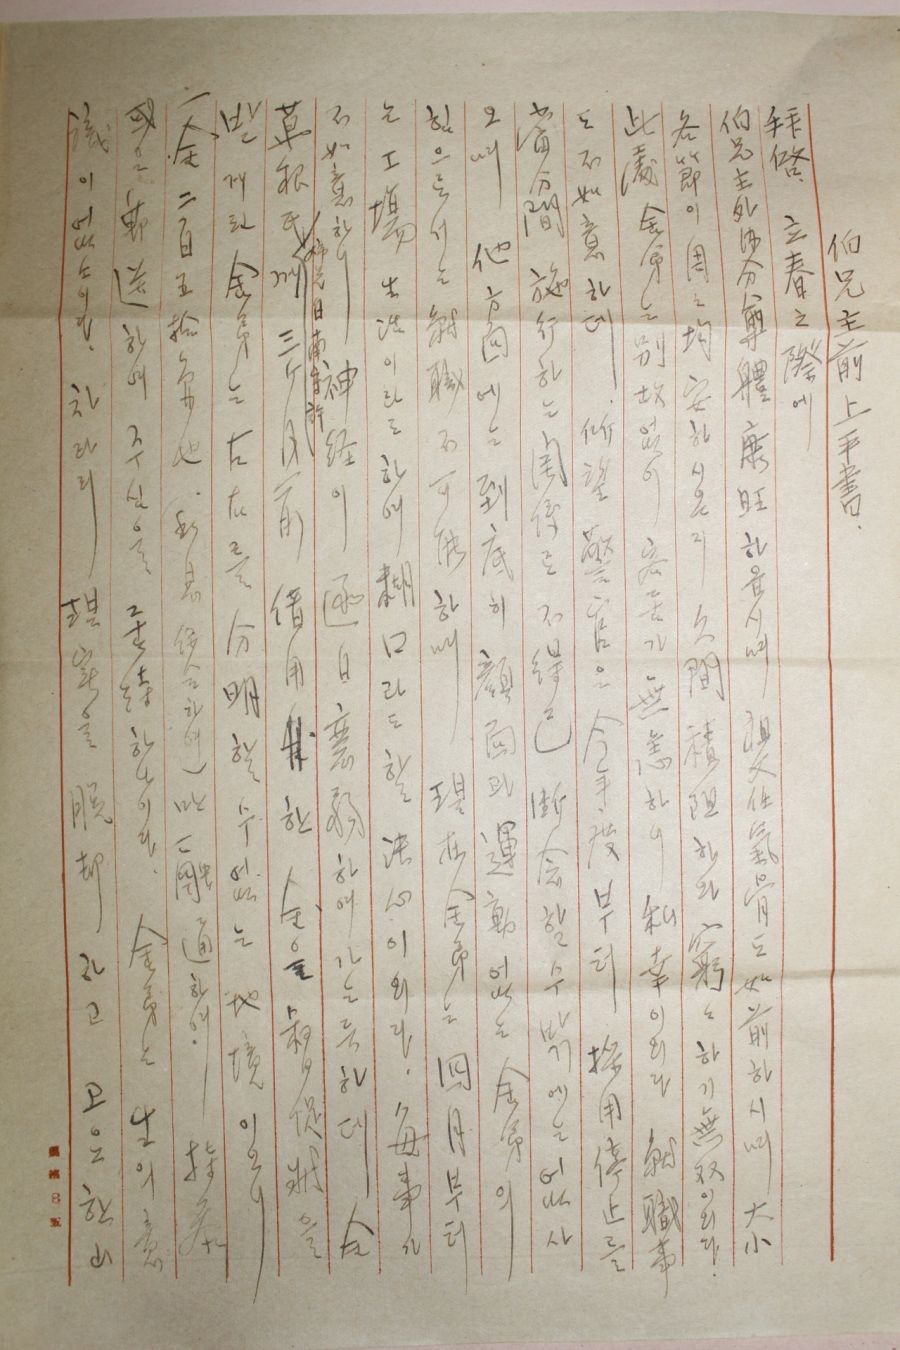 伯兄主前 上平書.
拜啓. 立春之際에
伯兄主外內分 尊體 康旺하읍시며 伯父任氣骨도 如前하시며 大小
各節이 周之均安하시온지 久間 積阻하와 窮는하기 無双이외다.
此處 舍弟는 別故없이 家幸가 無恙하니 私幸이외다 就職事
도 不如意하더니. 所望 警官은 今年度부터 採用停止를
當分間 施行하는 關係로 不得已 斷念할수밖에는 없사
오며 他方面에는 到底히 顔面과 運動없는 舍弟의
힘으로서는 就職不可能하매 現在舍弟는 四月부터
는 工場生活이라도 하여 糊口라도 할 決心이외다. 每事가
不如意하니 神経이 逐日衰弱하여가는듯하더니 今
草根氏께 三个月前 借用한 金을 督促狀을
받게되 舍弟는 右左를 分明할수없는 地境이오니
一金 二百五拾円也. 利息 만 融通하여.
郵送하여 주심을 苦待하나이다. 舍弟는 生의意
識이 없소이다. 차라리 現實을 脫却하고 고요한 山